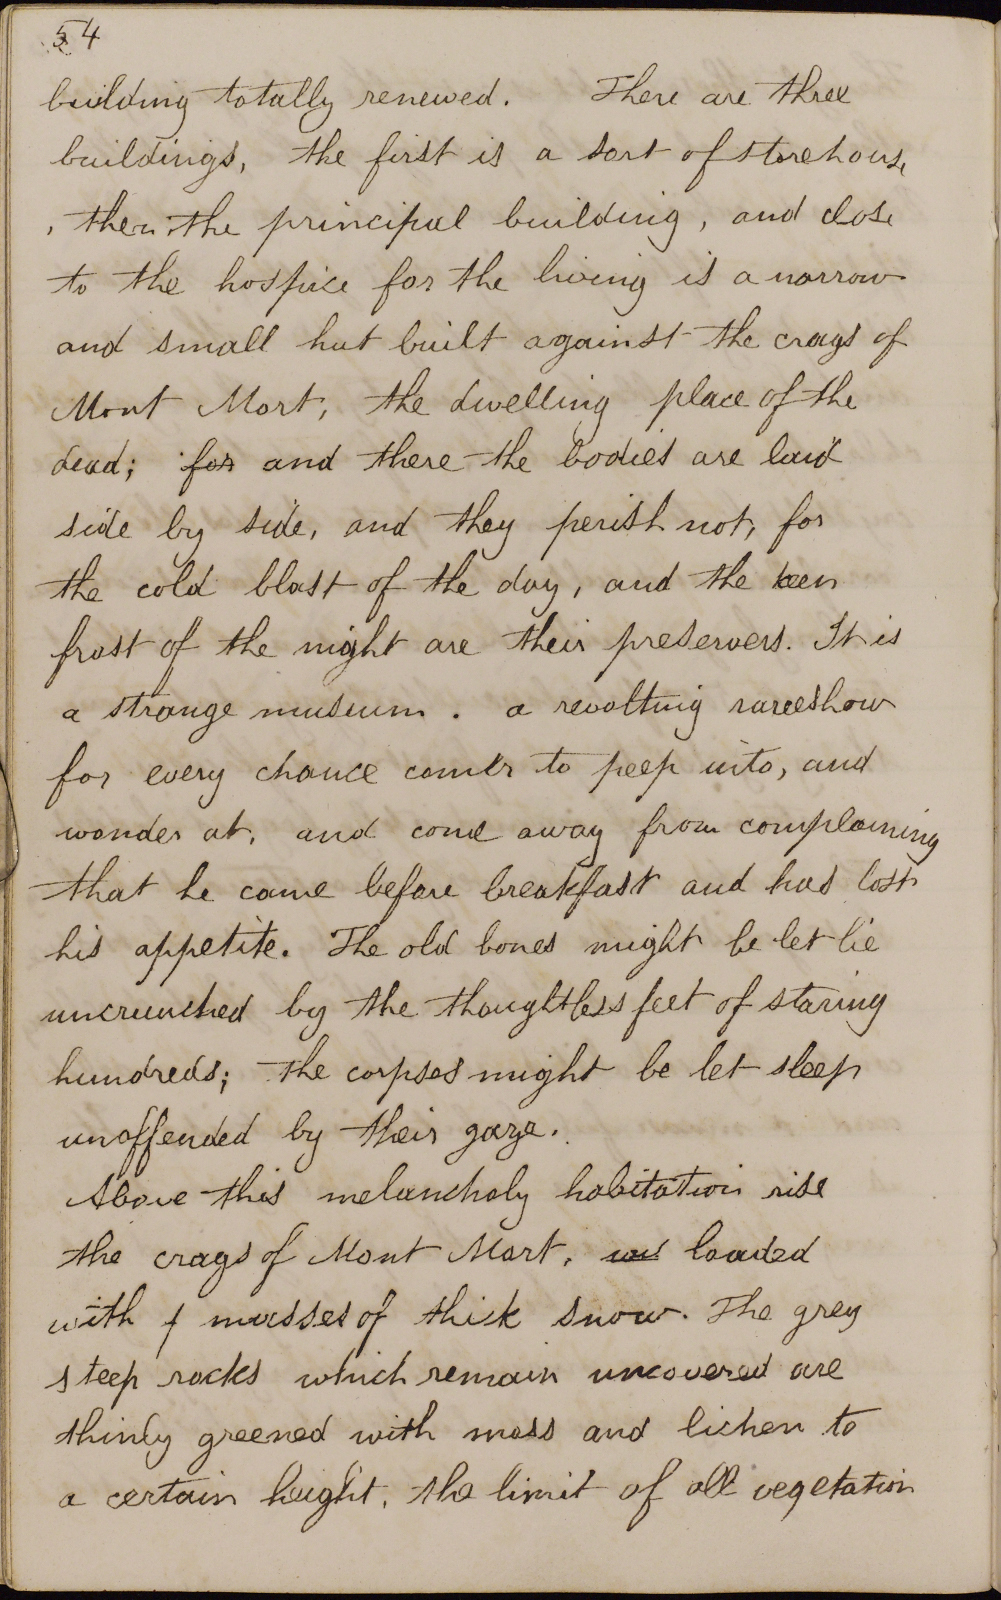 54
building totally renewed. There are three
buildings, the first is a sort of storehouse
, then the principal building, and close
to the hospice for the living is a narrow
and small hut built against the crags of
Mont Mort, the dwelling place of the
dead; for and there the bodies are laid
side by side, and they perish not, for
the cold blast of the day, and the keen
frost of the night are their preservers. It is
a strange museum. a revolting rareeshow
for every chance comer to peep into, and
wonder at, and come away from complaining
that he came before breakfast and has lost
his appetite. The old bones might be let lie
uncrunched by the thoughtless feet of staring
hundreds; the corpses might be let sleep
unoffended by their gaze.
Above this melancholy habitation rise
the crags of Mont Mort, loaded
with masses of thick snow. The grey
steep rocks which remain uncovered are
thinly greened with moss and lichen to
a certain height, the limit of all vegetation